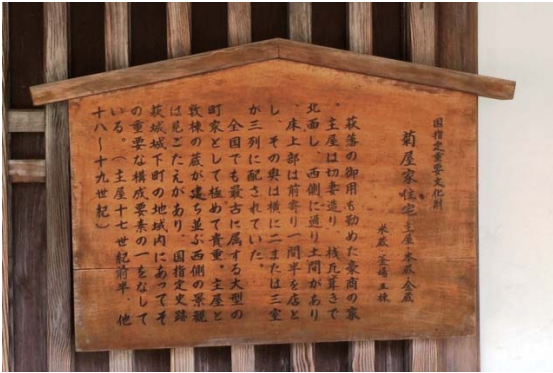 国指定重要文化財
菊屋家住宅 主屋 本蔵 金蔵
米蔵 釜場 五棟
萩藩の御用も勤めた豪商の家
。主屋は切妻造り、桟瓦葺きで
北面し、西側に通り土間があり
、床上部は前寄り一間半を店と
し、その奥は横に二または三室
が三列に配されていた。
全国でも最古に属する大型の
町家として極めて貴重。主屋と
数棟の蔵が建ち並ぶ西側の景観
は見ごたえがあり、国指定史跡
萩城城下町の地域内にあってそ
の重要な構成要素の一をなして
いる。(主屋十七世紀前半、他
十八〜十九世紀)